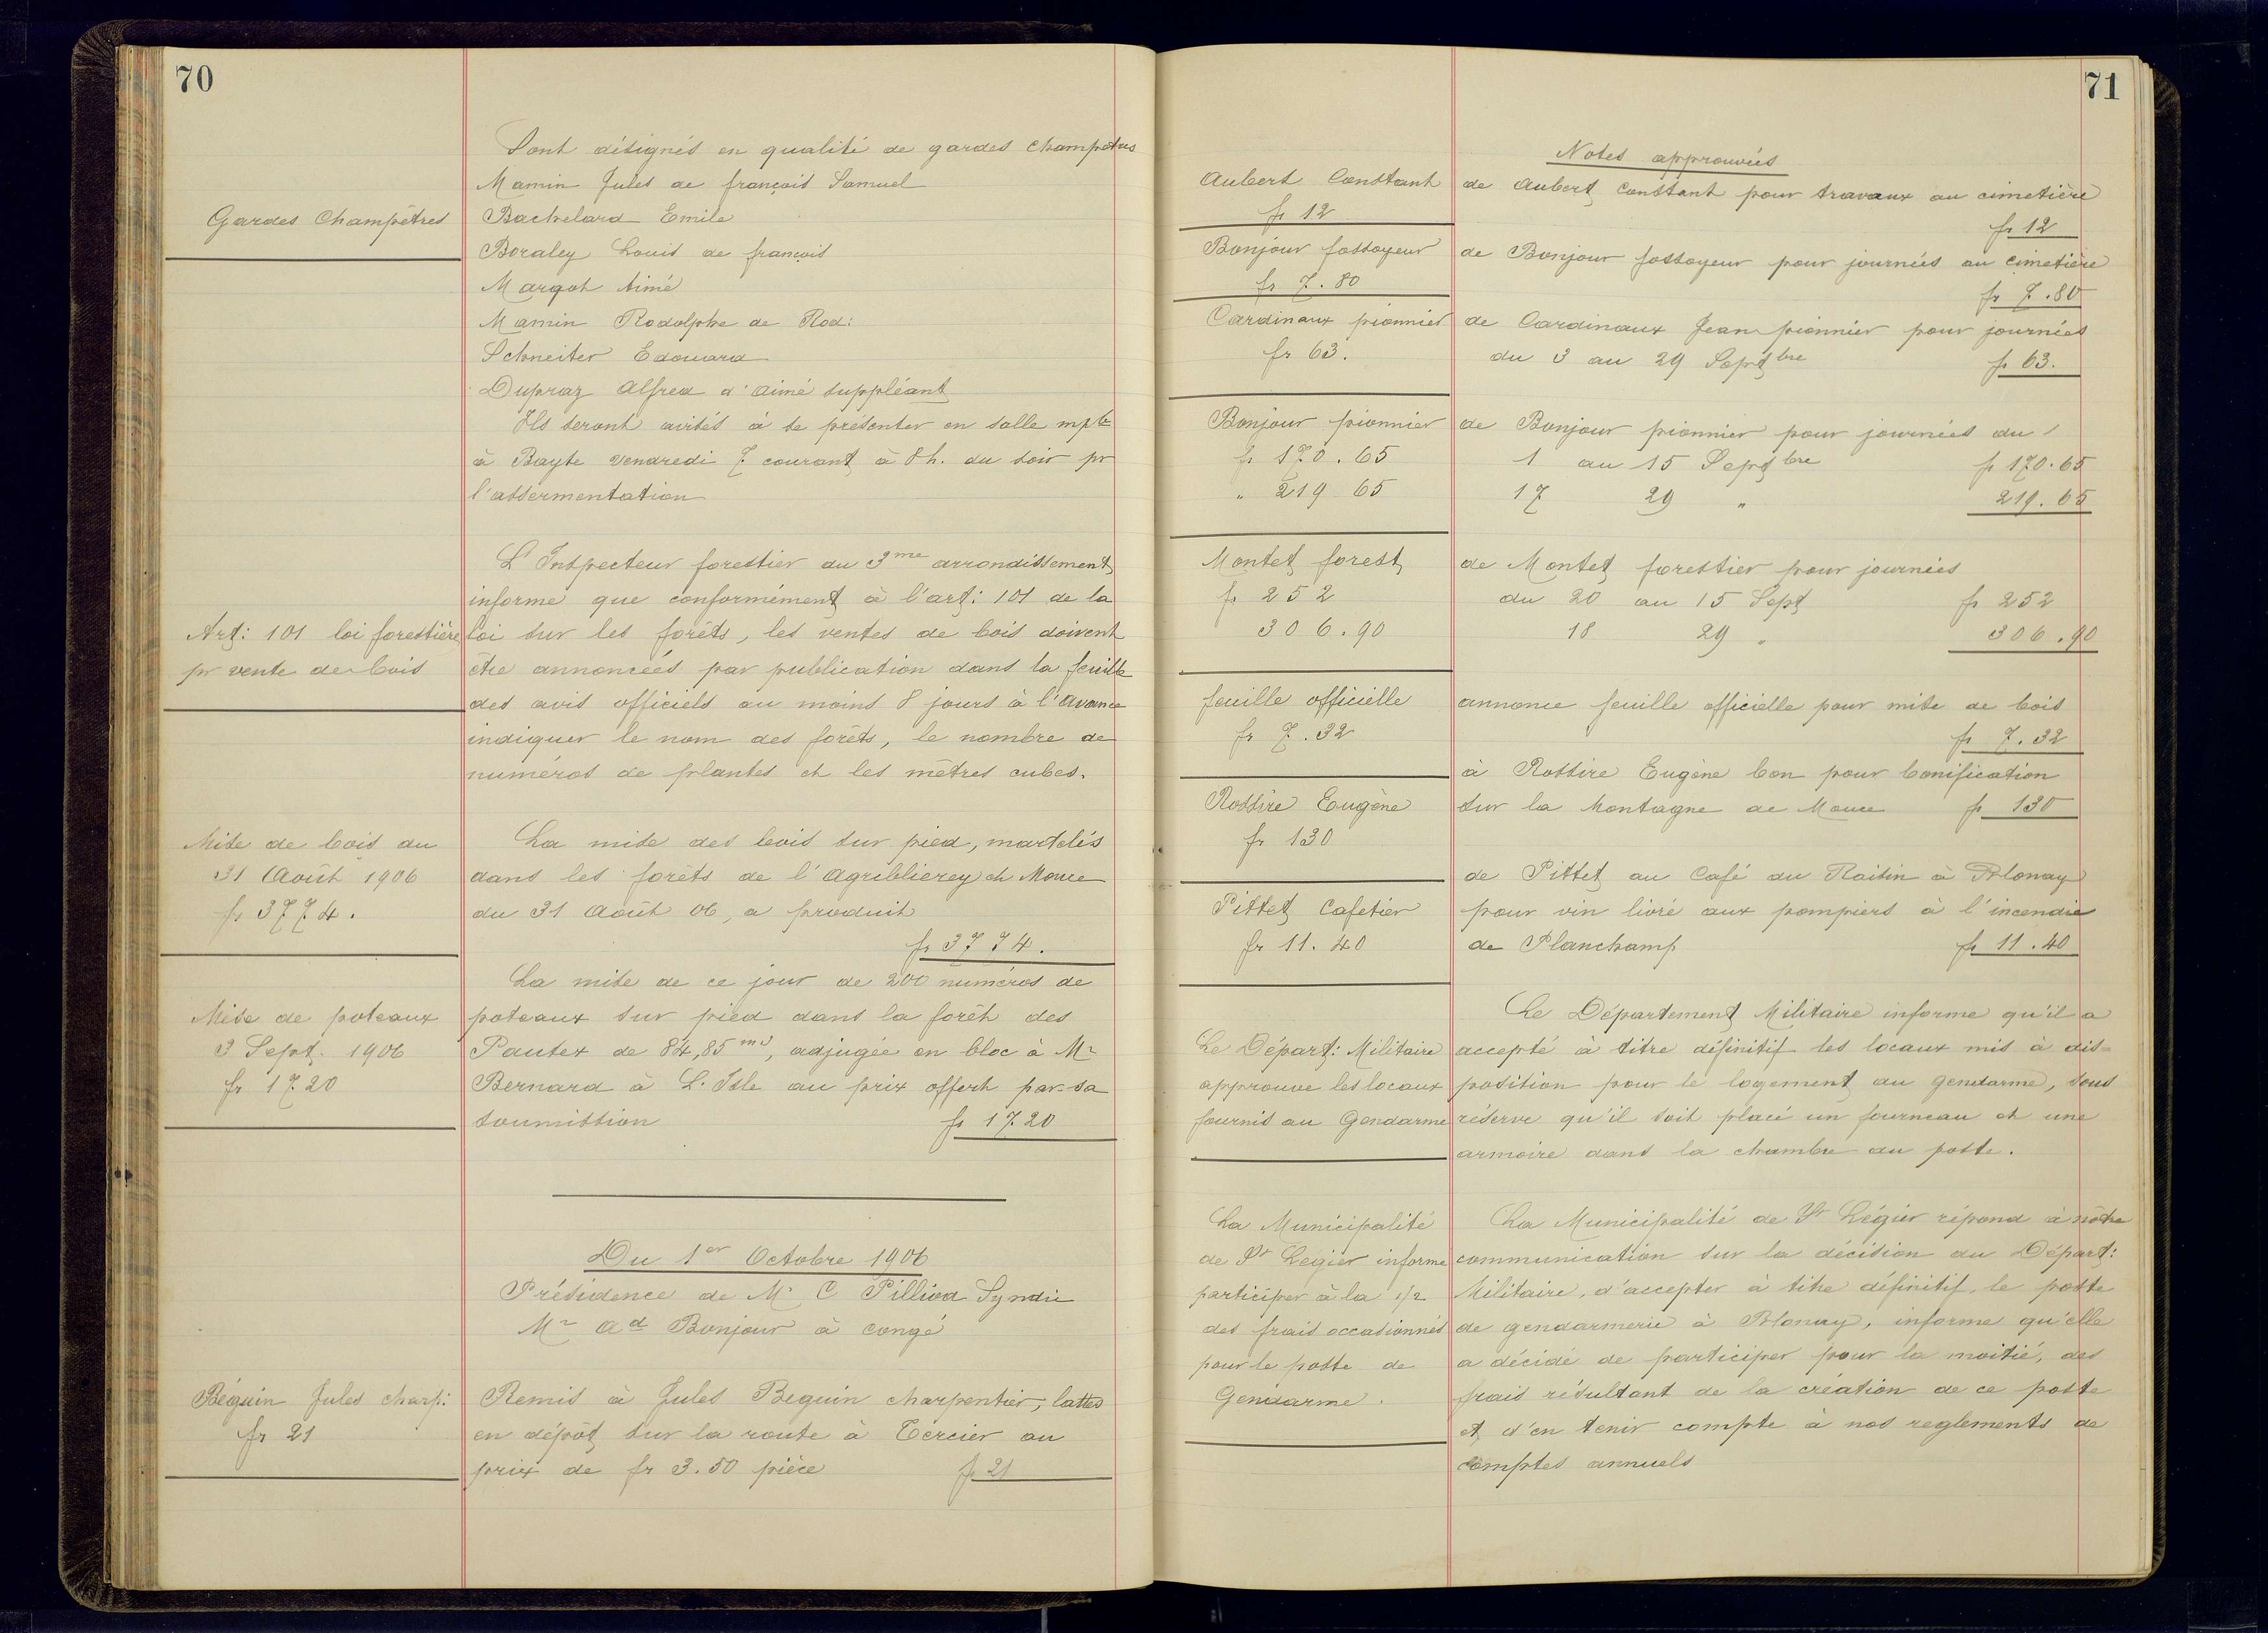 70
Sont désignés en qualité de gardes champêtres
Mamin Jules de françois Samuel
Gardes Champêtres
Bachelard Emile
Boraley Louis de françois
Margot Aimé
Mamin Rodolphe de Rod:
Schneiter Edouard
Dupraz Alfred d'Aimé suppléant
Ils seront avisés à se présenter en salle mple
à Bayse vendredi 7 courant à 8 h. du soir pr
l'assermentation
L'Inspecteur forestier du 3me arrondissement
informe que conformément à l'art: 101 de la
Art: 101 loi forestière
loi sur les forêts, les ventes de bois doivent
pr vente de bois
être annoncées par publication dans la feuille
des avis officiels au moins 8 jours à l'avance
indiquer le nom des forêts, le nombre de
numéros de plantes et les mètres cubes.
Mise de bois du
31 Août 1906
fr 3774.
La mise des bois sur pied, martelés
dans les forêts de l'Agreblierey et Mouce
du 31 Août 06, a produit
fr 3774.
Mise de poteaux
3 Sept. 1906
fr 1720
La mise de ce jour de 200 numéros de
poteaux sur pied dans la forêt des
Pautex de 84,85 m3, adjugée en bloc à Mr
Bernard à L. Isle au prix offert par sa
soumission fr 1720
Du 1er Octobre 1906
Présidence de Mr C Pilliod Syndic
Mr Ad Bonjour à congé
Béguin Jules charp:
fr 21
Remis à Jules Beguin charpentier, lattes
en dépôt sur la route à Tercier au
prix de fr 3.50 pièce fr 21
71
Notes approuvées
Aubert Constant
fr 12
de Aubert Constant pour travaux au cimetière
fr 12
Bonjour fossoyeur
fr 7.80
de Bonjour fossoyeur pour journées au cimetière
fr 7.80
Cardinaux pionnier
fr 63.
de Cardinaux Jean pionnier pour journées
du 3 au 29 Septbre fr 63.
Bonjour pionnier
fr 170.65
" 219 65
de Bonjour pionnier pour journées du
1 au 15 Septbre fr 170.65
17 29 " 219.65
Montet forest
fr 252
306.90
de Montet forestier pour journées
du 20 au 15 Sept fr 252
18 29 " 306.90
feuille officielle
fr 7.32
annonce feuille officielle pour mise de bois
fr 7.32
Rossire Eugène
fr 130
à Rossire Eugène bon pour bonification
sur la montagne de Mouce fr 130
Pittet Cafetier
fr 11.40
de Pittet au Café du Raisin à Blonay
pour vin livré aux pompiers à l'incendie
de Planchamp fr 11.40
Le Départ: Militaire
approuve les locaux
fournis au Gendarme
Le Département Militaire informe qu'il a
accepté à titre définitif les locaux mis à dis=
position pour le logement du gendarme, sous
réserve qu'il soit placé un fourneau et une
armoire dans la chambre du poste.
La Municipalité
de St Legier informe
participer à la 1/2
des frais occasionnés
pour le poste de
Gendarme.
La Municipalité de St Légier répond à nôtre
communication sur la décision du Départ:
Militaire, d'accepter à titre définitif, le poste
de gendarmerie à Blonay, informe qu'elle
a décidé de participer pour la moitié, des
frais résultant de la création de ce poste
et d'en tenir compte à nos reglements de
comptes annuels